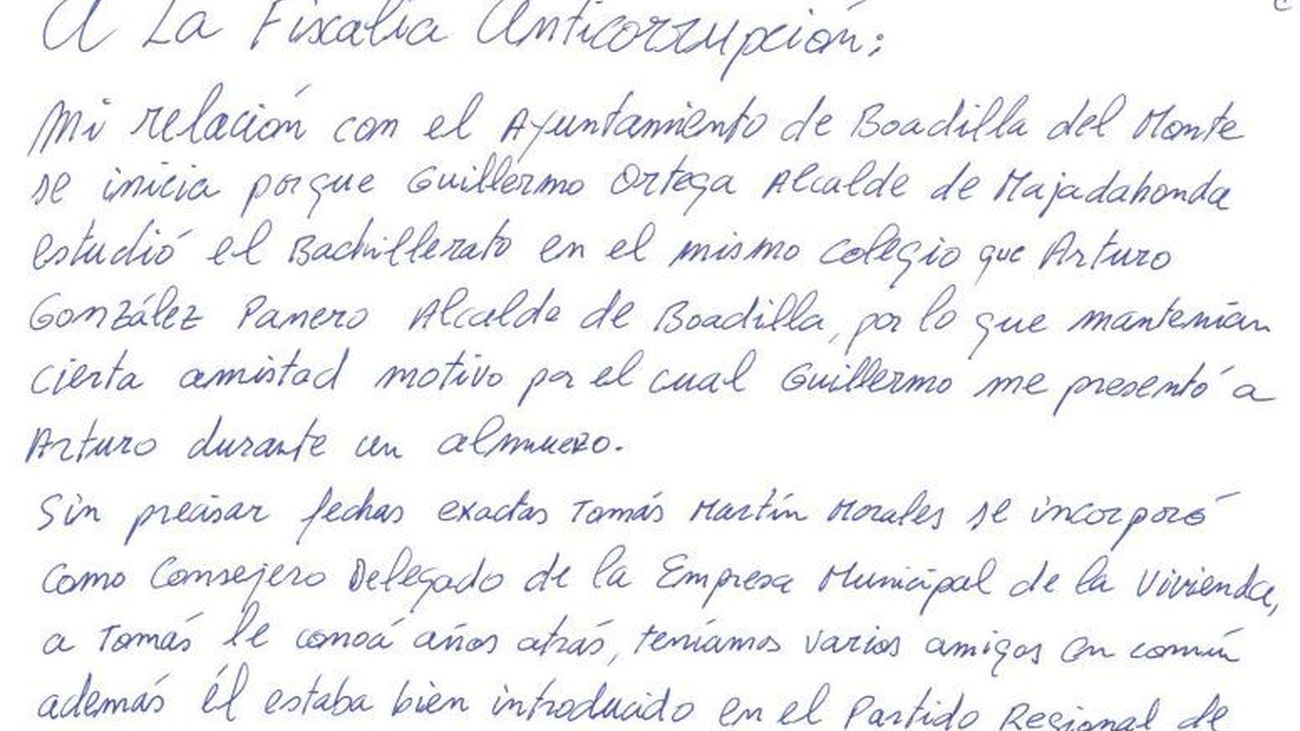 A La Fiscalía Anticorrupción:
Mi relación con el Ayuntamiento de Boadilla del Monte
se inicia porque Guillermo Ortega Alcalde de Majadahonda
estudió el Bachillerato en el mismo colegio que Arturo
González Panero Alcalde de Boadilla, por lo que mantenían
cierta amistad motivo por el cual Guillermo me presentó a
Arturo durante un almuezo.
Sin precisar fechas exactas Tomás Martín Morales se incorporó
como Consejero Delegado de la Empresa Municipal de la Vivienda,
a Tomás le conocí años atrás, teníamos varios amigos en común
además él estaba bien introducido en el Partido Regional de